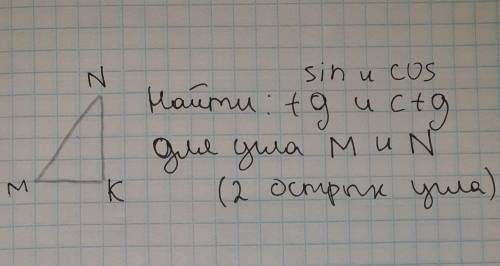 sin и cos
N
Найти: tg и ctg
для угла M и N
M K (2 острых угла)